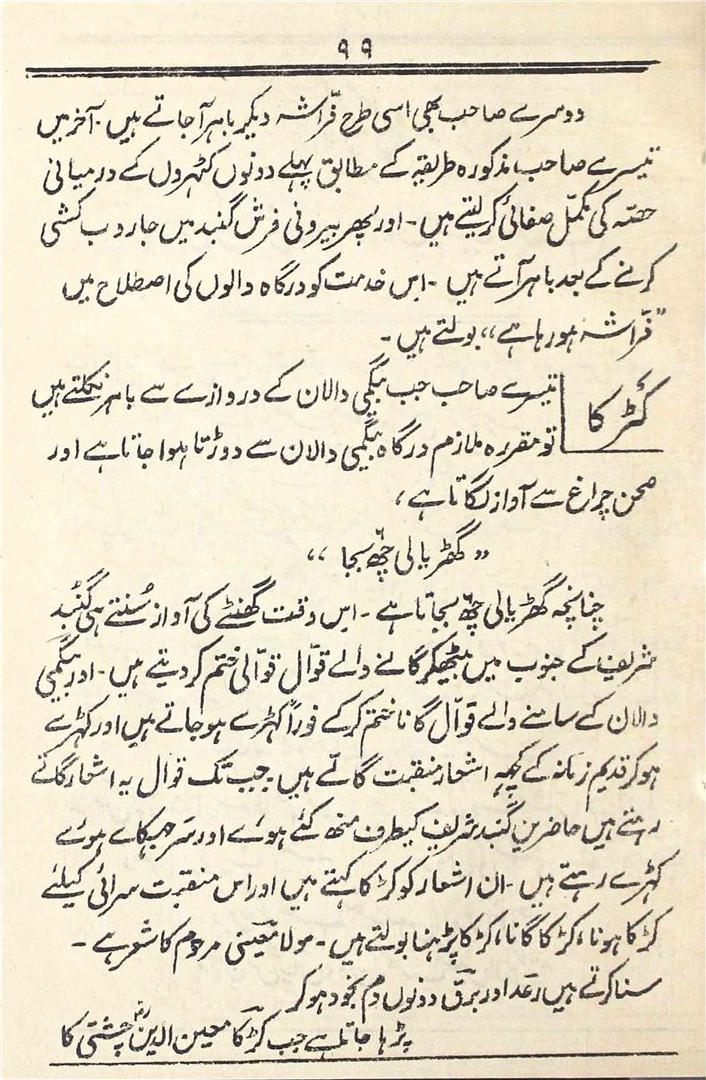 ۹۹
دوسرے صاحب بھی اسی طرح فرّاشہ دیکر باہر آجاتے ہیں۔ آخر میں
تیسرے صاحب مذکورہ طریقہ کے مطابق پہلے دونوں کٹہروں کے درمیانی
حصّہ کی مکمّل صفائی کر لیتے ہیں۔ اور پھر بیرونی فرش گنبد میں جاروب کشی
کرنے کے بعد باہر آتے ہیں۔ اس خدمت کو درگاہ والوں کی اصطلاح میں
”فرّاشہ ہو رہا ہے“ بولتے ہیں۔
کڑکا
تیسرے صاحب جب بیگمی دالان کے دروازے سے باہر نکلتے ہیں
تو مقررہ ملازم درگاہ بیگمی دالان سے دوڑتا ہوا جاتا ہے اور
صحن چراغ سے آواز لگاتا ہے،
”گھڑیالی چھ بجا“
چنانچہ گھڑیالی چھ بجاتا ہے۔ اس وقت گھنٹے کی آواز سُنتے ہی گنبد
شریف کے جنوب میں بیٹھکر گانے والے قوّال قوّالی ختم کر دیتے ہیں۔ اور بیگمی
دالان کے سامنے والے قوّال گانا ختم کرکے فوراً کہڑے ہو جاتے ہیں اور کہڑے
ہو کر قدیم زمانہ کے کچہہ اشعار منقبت گاتے ہیں۔ جب تک قوال یہ اشعار گاتے
رہتے ہیں حاضرین گنبد شریف کیطرف منھ کئے ہوئے اور سر جہکائے ہوئے
کہڑے رہتے ہیں۔ ان اشعار کو کڑکا کہتے ہیں اور اس منقبت سرائی کیلئے
کڑکا ہونا، کڑکا گانا، کڑکا پڑہنا بولتے ہیں۔ مولانا معینی مرحوم کا شعر ہے۔
سنا کرتے ہیں رعد اور برق دونوں دم بخود ہو کر
پڑہا جاتا ہے جب کڑکا معین الدین چشتی کا